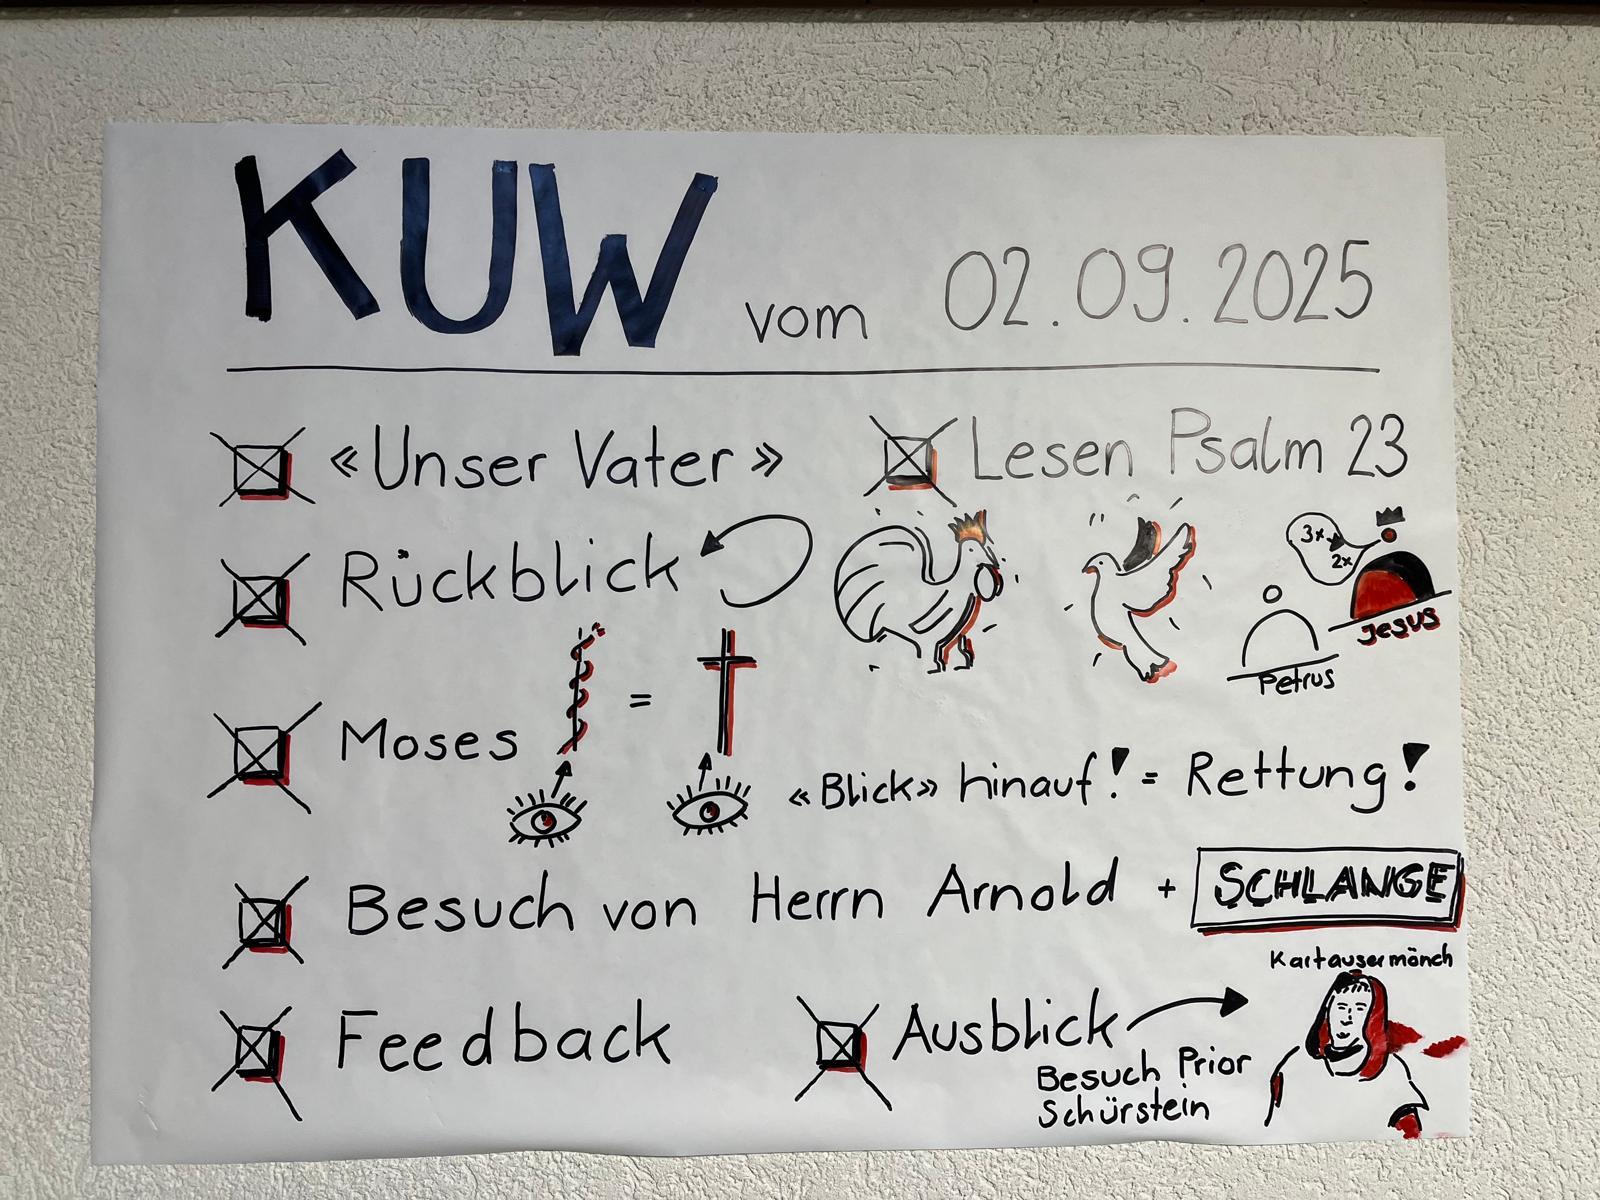 KUW vom 02.09.2025
«Unser Vater»
Lesen Psalm 23
Rückblick
3x
2x
Jesus
Petrus
Moses =
«Blick» hinauf! = Rettung!
Besuch von Herrn Arnold + SCHLANGE
Feedback
Ausblick
Besuch Prior
Schürstein
Kartausermönch